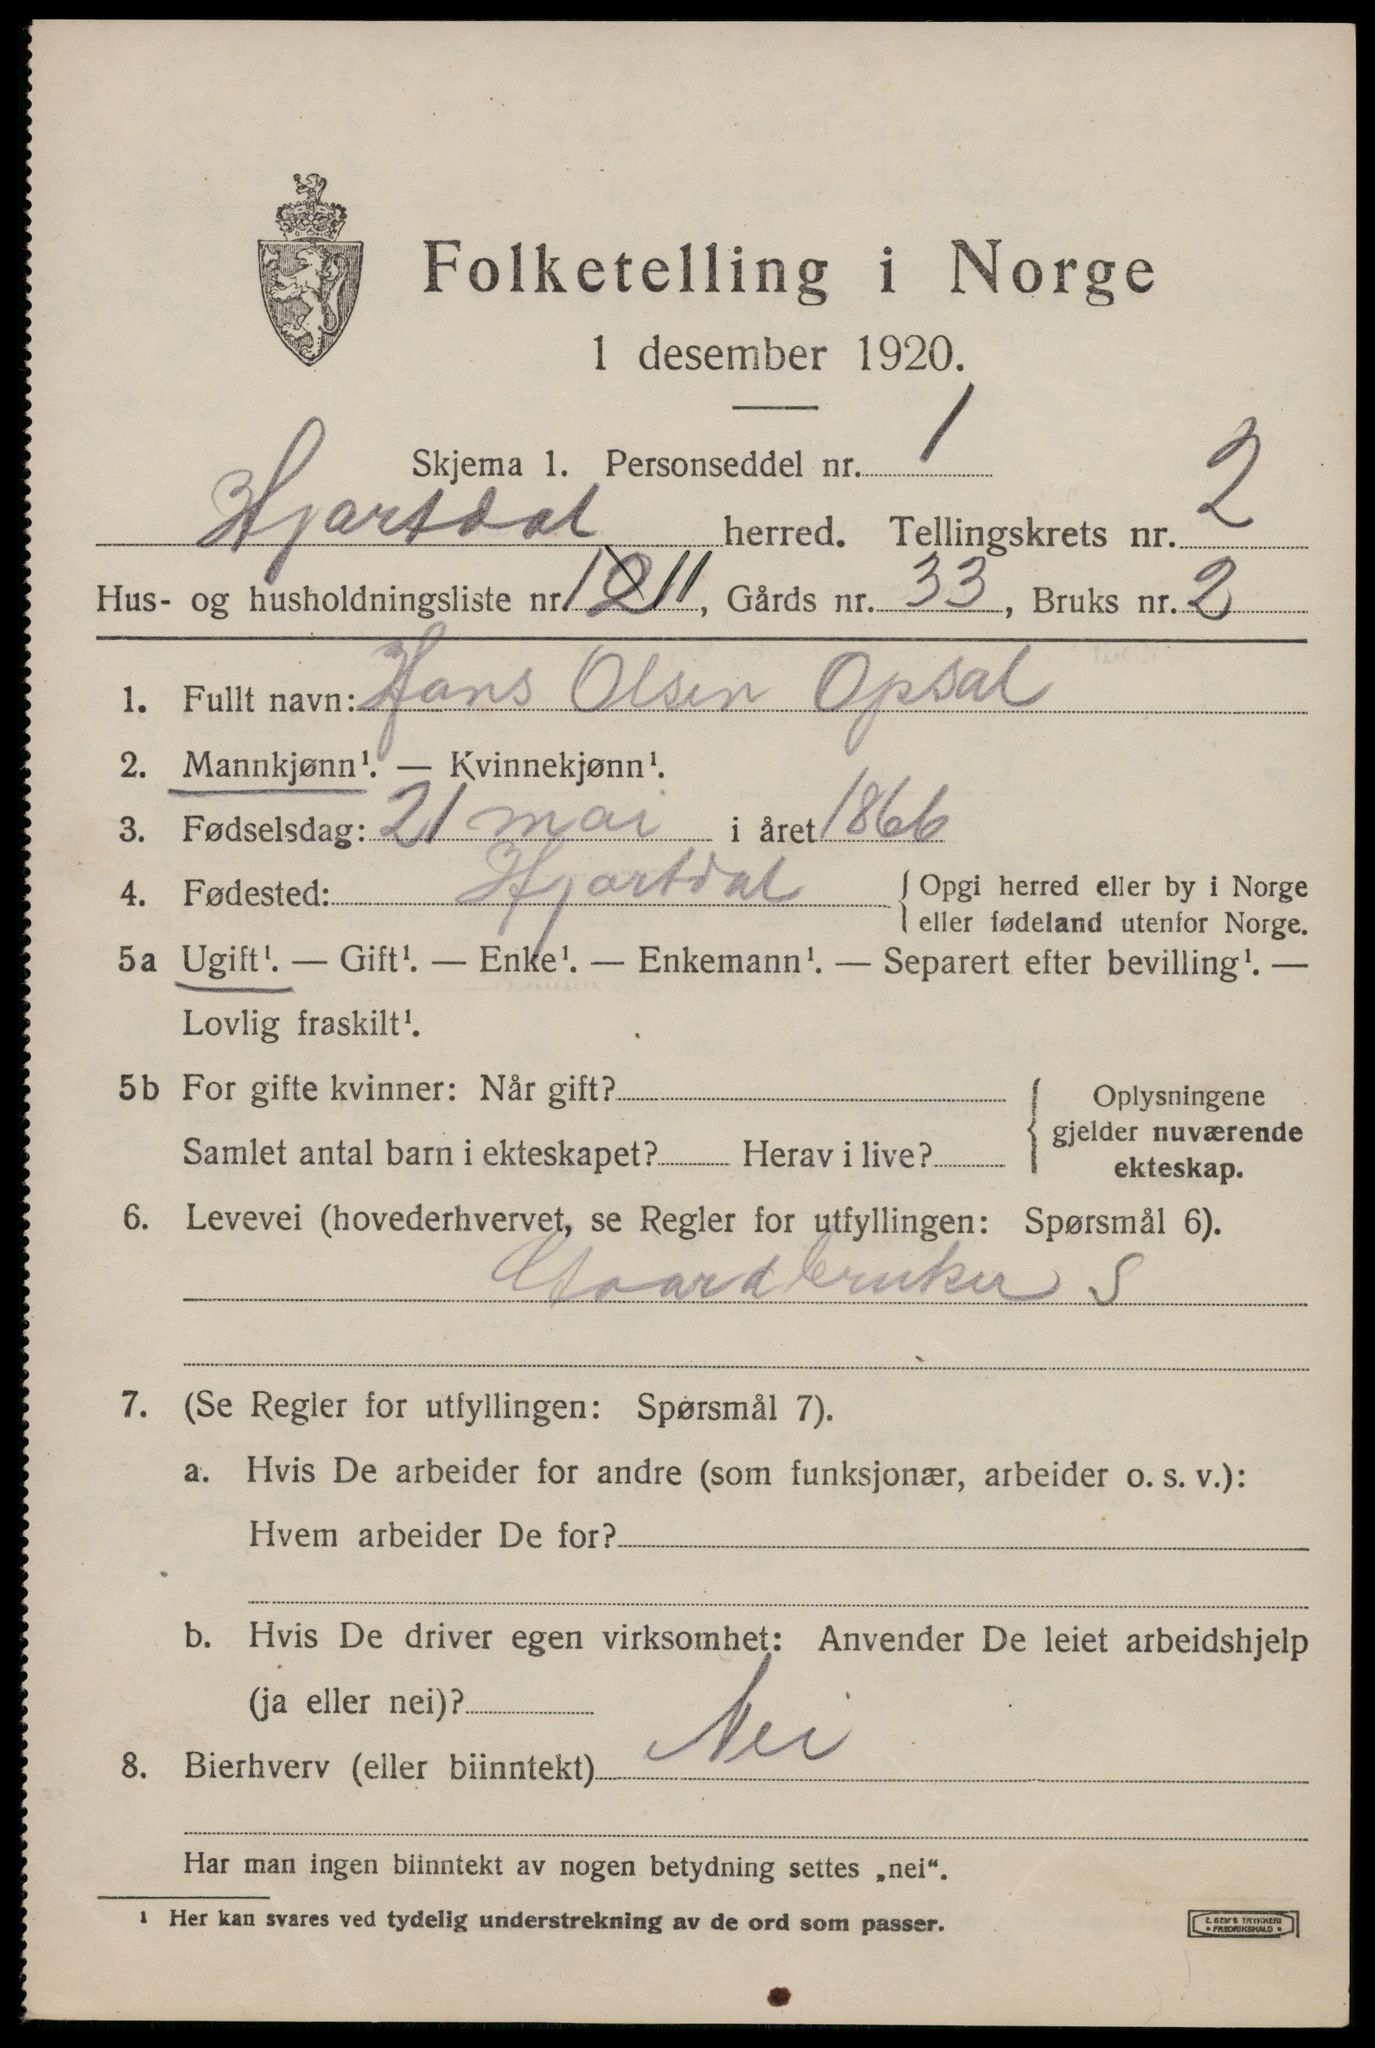 Folketelling i Norge
1 desember 1920.
Skjema 1. Personseddel nr. 1
Hjartdal herred. Tellingskrets nr. 2
Hus- og husholdningsliste nr. 12 11, Gårds nr. 33, Bruks nr. 2
1. Fullt navn: Hans Olsen Opsal
2. Mannkjønn¹. — Kvinnekjønn¹.
3. Fødselsdag: 21 mai i året 1866
4. Fødested: Hjartdal { Opgi herred eller by i Norge
eller fødeland utenfor Norge.
5a Ugift¹. — Gift¹. — Enke¹. — Enkemann¹. — Separert efter bevilling¹. —
Lovlig fraskilt¹.
5b For gifte kvinner: Når gift?
Samlet antal barn i ekteskapet? Herav i live?
{ Oplysningene
gjelder nuværende
ekteskap.
6. Levevei (hovederhvervet, se Regler for utfyllingen: Spørsmål 6).
Gaardbruker S
7. (Se Regler for utfyllingen: Spørsmål 7).
a. Hvis De arbeider for andre (som funksjonær, arbeider o. s. v.):
Hvem arbeider De for?
b. Hvis De driver egen virksomhet: Anvender De leiet arbeidshjelp
(ja eller nei)?
8. Bierhverv (eller biinntekt) Nei
Har man ingen biinntekt av nogen betydning settes „nei".
¹ Her kan svares ved tydelig understrekning av de ord som passer.
E. SEM'S TRYKKERI
• FREDRIKSHALD •